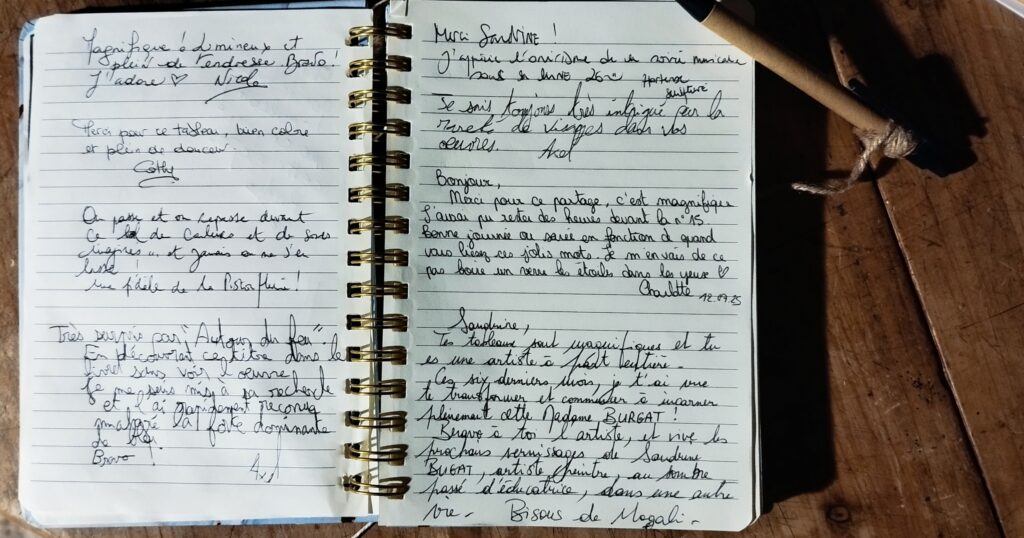 Magnifique ! Lumineux et
plein de tendresse Bravo !
J'adore ♡ Nicole
Merci pour ce tableau, bien coloré
et plein de douceur.
Cathy
On passe et on repasse devant
ce de et de ses
et jamais on ne s'en
lasse !
une fidèle de la !
Très surpris par "Autour du feu"
En découvrant ce titre dans le
livret sans voir l'œuvre,
je me suis mis à sa recherche
et l'ai rapidement reconnu
malgré la forte dominante
de
Bravo !
Merci SANDRINE !
J'apprécie de la soirée musicale
sous la lune
sculpture
Je suis toujours très intrigué par la
de visages dans vos
œuvres. Axel
Bonjour,
Merci pour ce partage, c'est magnifique
J'aurai pu rester des heures devant la n°15
Bonne journée ou soirée en fonction d quand
vous lisez ces jolis mots. Je m'en vais de ce
pas boire un verre les étoiles dans les yeux ♡
Charlotte 12.07.25
Sandrine,
Tes tableaux sont magnifiques et tu
es une artiste à part entière.
Ces six derniers mois, je t'ai vue
te transformer et commencer à incarner
pleinement cette Madame BURGAT !
Bravo à toi l'artiste, et vive les
prochains vernissages de Sandrine
BUGAT, artiste peintre, au sombre
passé d'éducatrice, dans une autre
vie - Bisous de Magali -